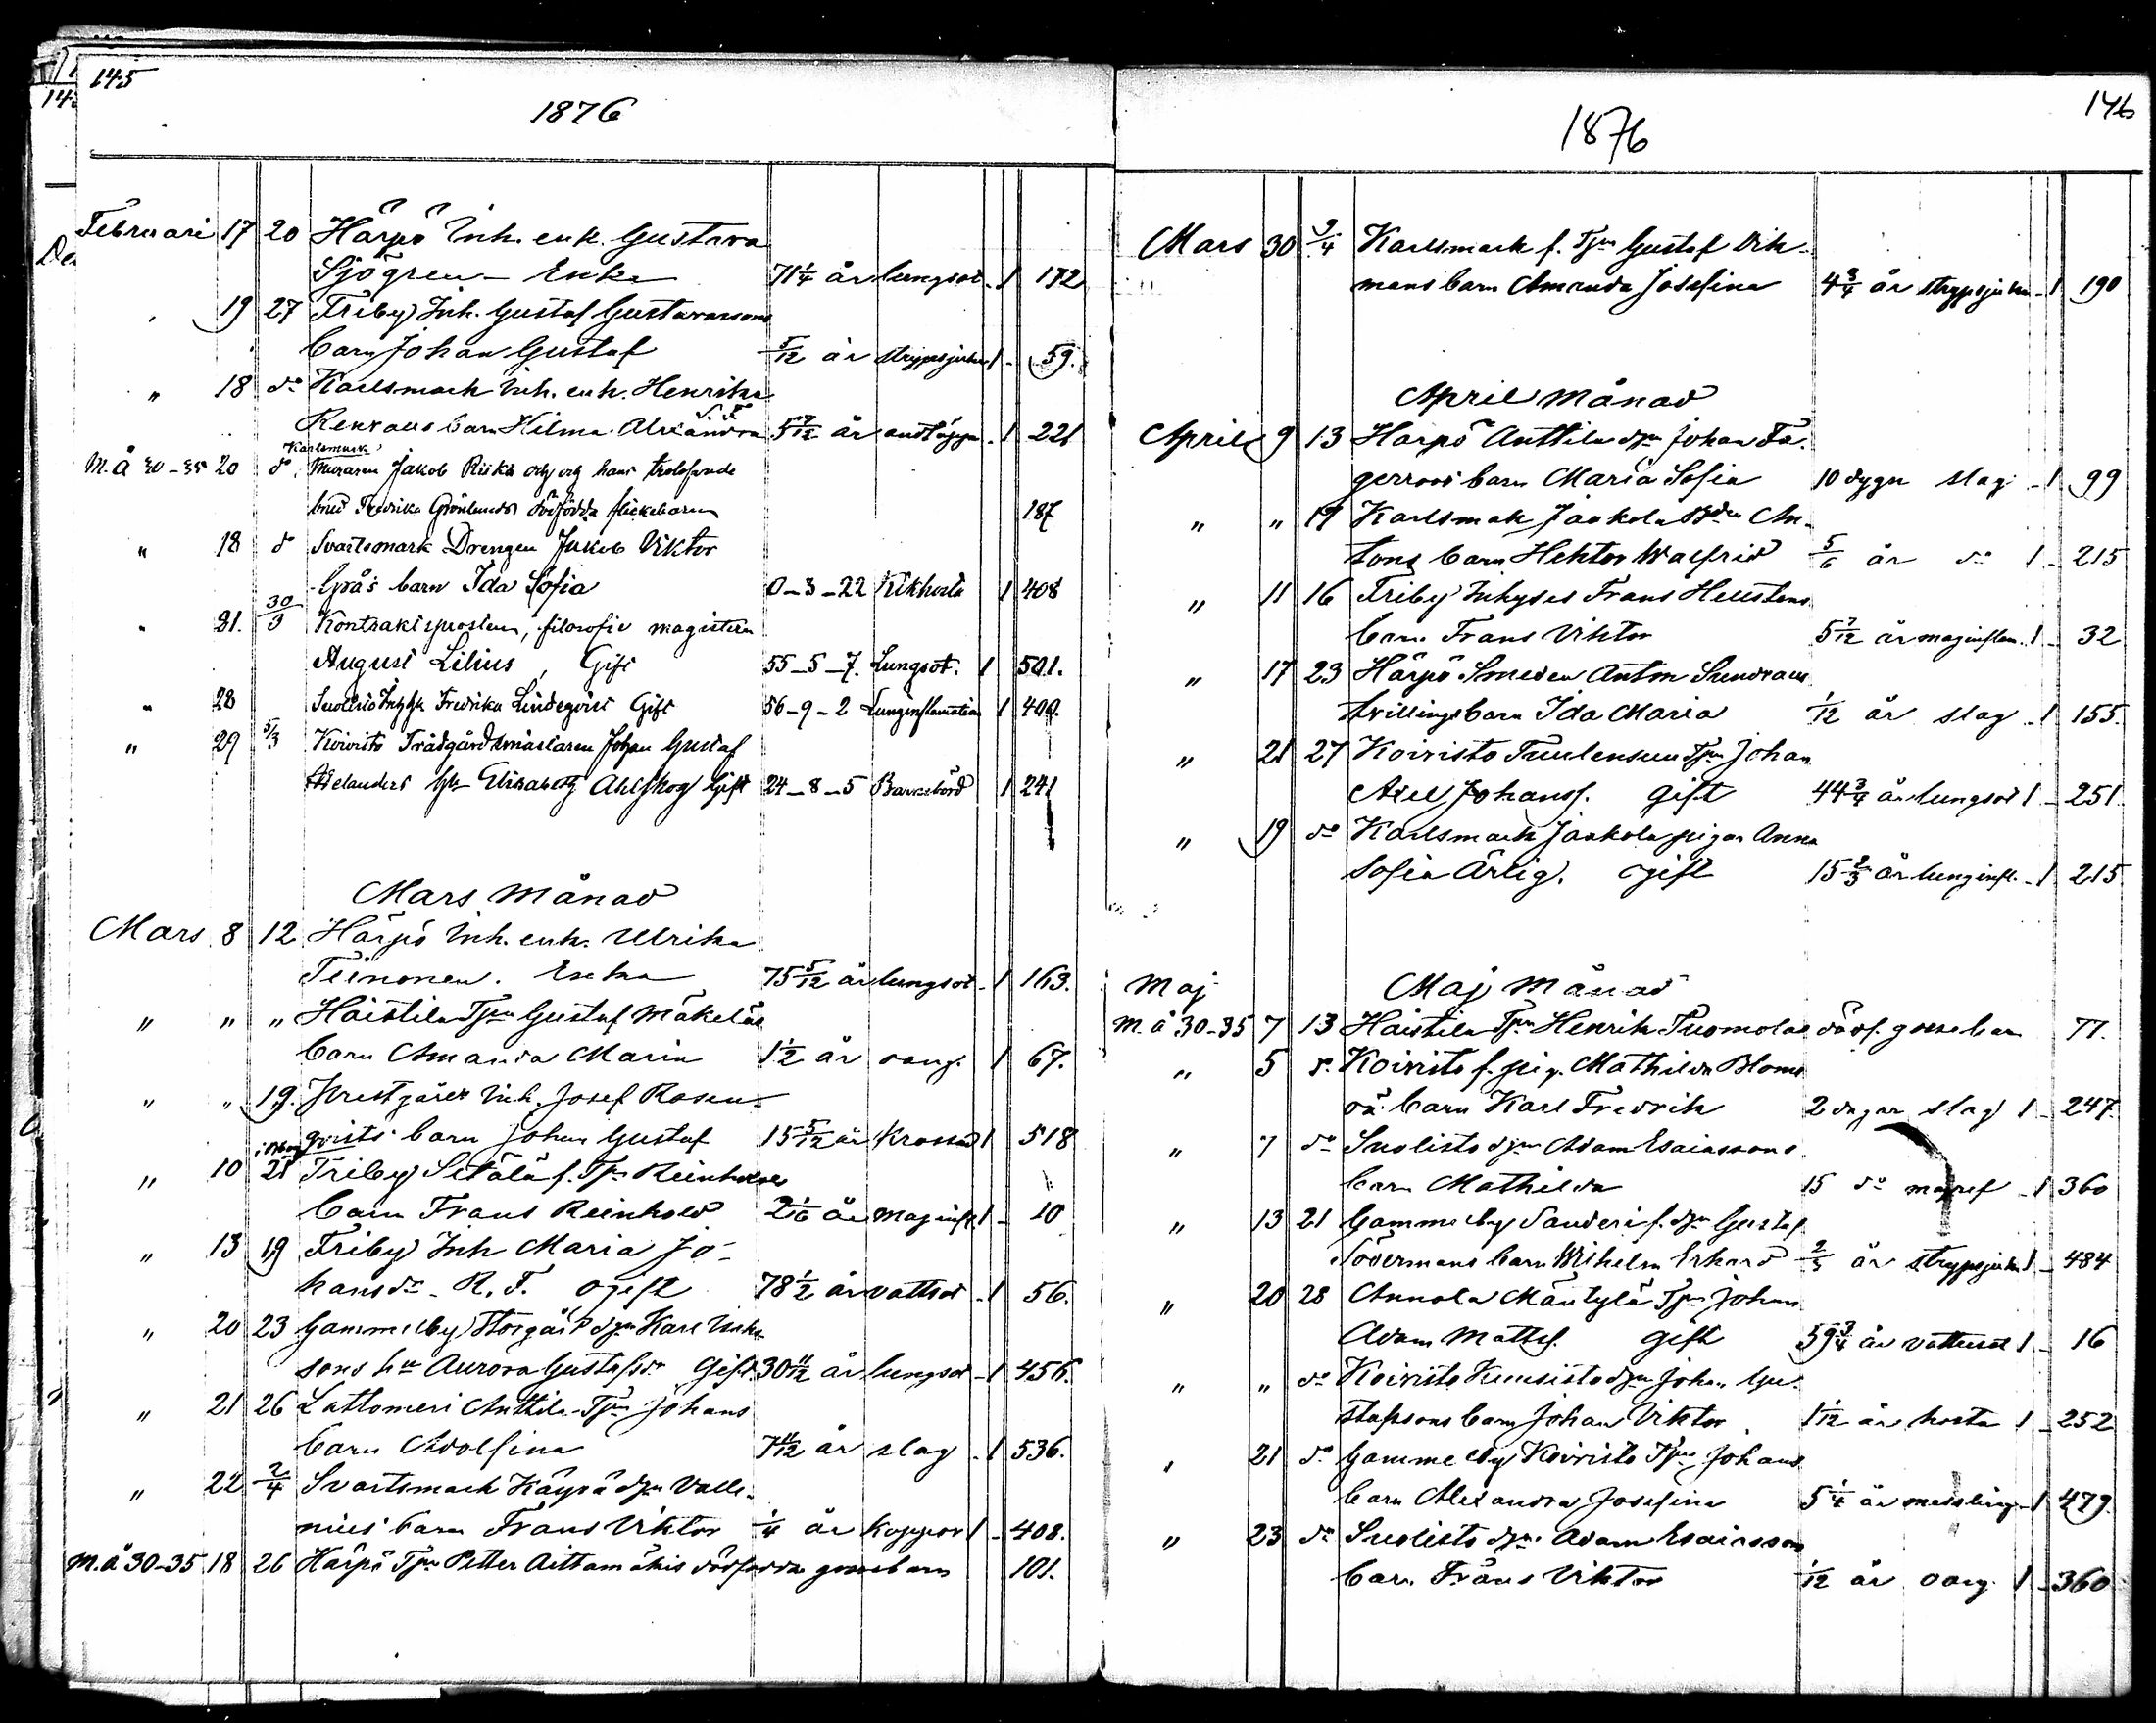 145
1876
Februari 17 20 Härpö Inh. enk. Gustava
Sjögren - Enka 71 1/4 år lungsot - 1 172
19 27 Friby Inh. Gustaf Gustavssons
barn Johan Gustaf 5/12 år strypsjukan 1 - 59.
" 18 do Karlsmark Inh. enk. Henrika
barn Hilma Alexandra 5 7/12 år andtäppa - 1 221
Karlsmark
M. Å 30-35 20 do Muraren Jakob och hans trolofvade
brud Fredrika Grönlunds dödfödda flickebarn 187
" 18 d Svartsmark Drengen Jakob Viktor
Grås barn Ida Sofia 0-3-22 Kikhosta 1 408
" 21. 30/3 Kontraktsprosten, filosofie magistern
August Lilius, Gift 55-5-7. Lungsot. 1 501.
" 28 Suolisto Fredrika Lindqvist Gift 56-9-2 Lunginflamation 1 400.
" 29 5/3 Koivisto Trädgårdsmästaren Johan Gustaf
Helanders h:u Elisabeth Ahlskog Gift 24-8-5 Barnsbörd 1 241
Mars Månad
Mars 8 12 Härpö Inh. enk. Ulrika
Teinonen. Enka 75 5/12 år lungsot - 1 163.
" " " Haistila Tjm Gustaf Mäkeläs
barn Amanda Maria 1 1/2 år oang. 1 67.
" " 19. Prestgård Inh. Josef Rosen-
qvists barn Johan Gustaf 15 5/12 år Krossad 1 518
" 10 21 Friby Setälä f. Tjm Reinholds
barn Frans Reinhold 2 1/6 år maginfl. 1 - 10
" 13 19 Friby Inh Maria Jo-
hansdr. R. F. ogift 78 1/2 år vattsot - 1 56.
" 20 23 Gammelby Storgård djm Karl
sons hu Aurora Gustafsdr Gift 30 11/12 år lungsot - 1 456.
" 21 26 Lattomeri Anttila Tjm Johans
barn Adolfina 7 11/12 år slag - 1 536.
" 22 2/4 Svartsmark Käyrä djm Valle-
nius barn Frans Viktor 1/4 år Koppor 1 - 408.
M. å 30-35 18 26 Härpö Tjm Petter Aittamäkis dödfödda gossebarn 101.
146
1876
Mars 30 9/4 Karlsmark f. Tjm Gustaf Vik-
mans barn Amanda Josefina 4 3/4 år strypsjukan - 1 190
April Månad
April 9 13 Härpö Anttila djm Johan Fa-
gerroos barn Maria Sofia 10 dygn slag - 1 99
" " 19 Karlsmark Jaakola Bdn An-
tons barn Hektor Walfrid 5/6 år do 1 - 215
" 11 16 Friby Inhyses Frans Hellstens
barn Frans Viktor 5 7/12 år maginflam. 1 - 32
" 17 23 Härpö Smeden Anton Sundvalls
tvillingsbarn Ida Maria 1/12 år slag - 1 155.
" 21 27 Koivisto Tuulensuu Tjm Johan
Axel Johanss. gift 44 3/4 år lungsot 1 - 251.
" 19 do Karlsmark Jaakola pigan Anna
Sofia Ärlig. ogift 15 2/3 år lunginfl. - 1 215
Maj Maj Månad
M. å 30-35 7 13 Haistila Tjm Henrik Tuomolas dödf. gossebarn 77.
" 5 d. Koivisto f. pig. Mathilda Bloms
oä. barn Karl Fredrik 2 dagar slag 1 - 247.
" 7 do Suolisto djm Adam Esaiassons
barn Mathilda 15 do magref - 1 360
" 13 21 Gammelby Sanderi f. djm Gustaf
Södermans barn Wilhelm Erhard 2/3 år strypsjukan 1 - 484
" 20 28 Annola Mäntylä Tjm Johan
Adam Mattsf. gift 59 3/4 år vattusot 1 - 16
" " do Koivisto Kuusisto djm Johan Gu-
stafssons barn Johan Viktor 1 1/12 år hosta 1 - 252
" 21 do Gammelby Koivisto Tjm Johans
barn Alexandra Josefina 5 1/4 år messling - 1 479.
" 23 do Suolisto djm Adam Esaiasson
barn Frans Viktor 1/12 år oang. 1 - 360